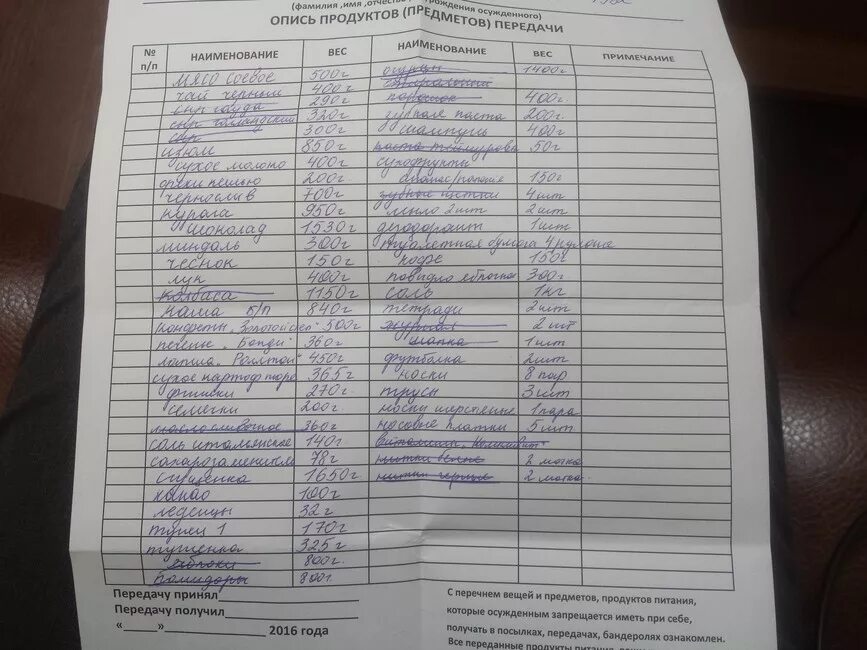 (фамилия ,имя ,отчество, рождения осужденного)
ОПИСЬ ПРОДУКТОВ (ПРЕДМЕТОВ) ПЕРЕДАЧИ
№ п/п НАИМЕНОВАНИЕ ВЕС НАИМЕНОВАНИЕ ВЕС ПРИМЕЧАНИЕ
мясо соевое 500г огурцы 1400г
чай черный 400г
сыр гауда 290г порошок 400г
сыр голландский 320г зубная паста 200г
сыр 300г шампунь 400г
изюм 850г паста 50г
сухое молоко 400г сухофрукты
орехи кешью 200г ананас/папайя 150г
чернослив 700г зубные щетки 4шт
курага 950г мыло 2шт 2шт
шоколад 1530г дезодорант 1шт
миндаль 300г туалетная бумага 4 рулона
чеснок 150г кофе 150г
лук 400г повидло яблочное 300г
колбаса 1150г соль 1кг
каша б/п 840г тетради 2шт
конфеты "Золотой 500г журнал 2шт
печенье "Бонди" 360г шапка 1шт
лапша "Роллтон" 450г футболка 2шт
сухое картоф пюре 365г носки 8 пар
финики 270г трусы 3шт
семечки 200г носки шерстяные 1пара
масло сливочное 360г носовые платки 5шт
соль итальянская 140г витамины
сахарозаменитель 78г нитки белые 2 мотка
сгущенка 1650г нитки черные 2 мотка
какао 100г
леденцы 32г
тунец 1 170г
тушенка 325г
яблоки 800г
помидоры 800г
Передачу принял
Передачу получил
"___" 2016 года
С перечнем вещей и предметов, продуктов питания,
которые осужденным запрещается иметь при себе,
получать в посылках, передачах, бандеролях ознакомлен.
Все переданные продукты питания,